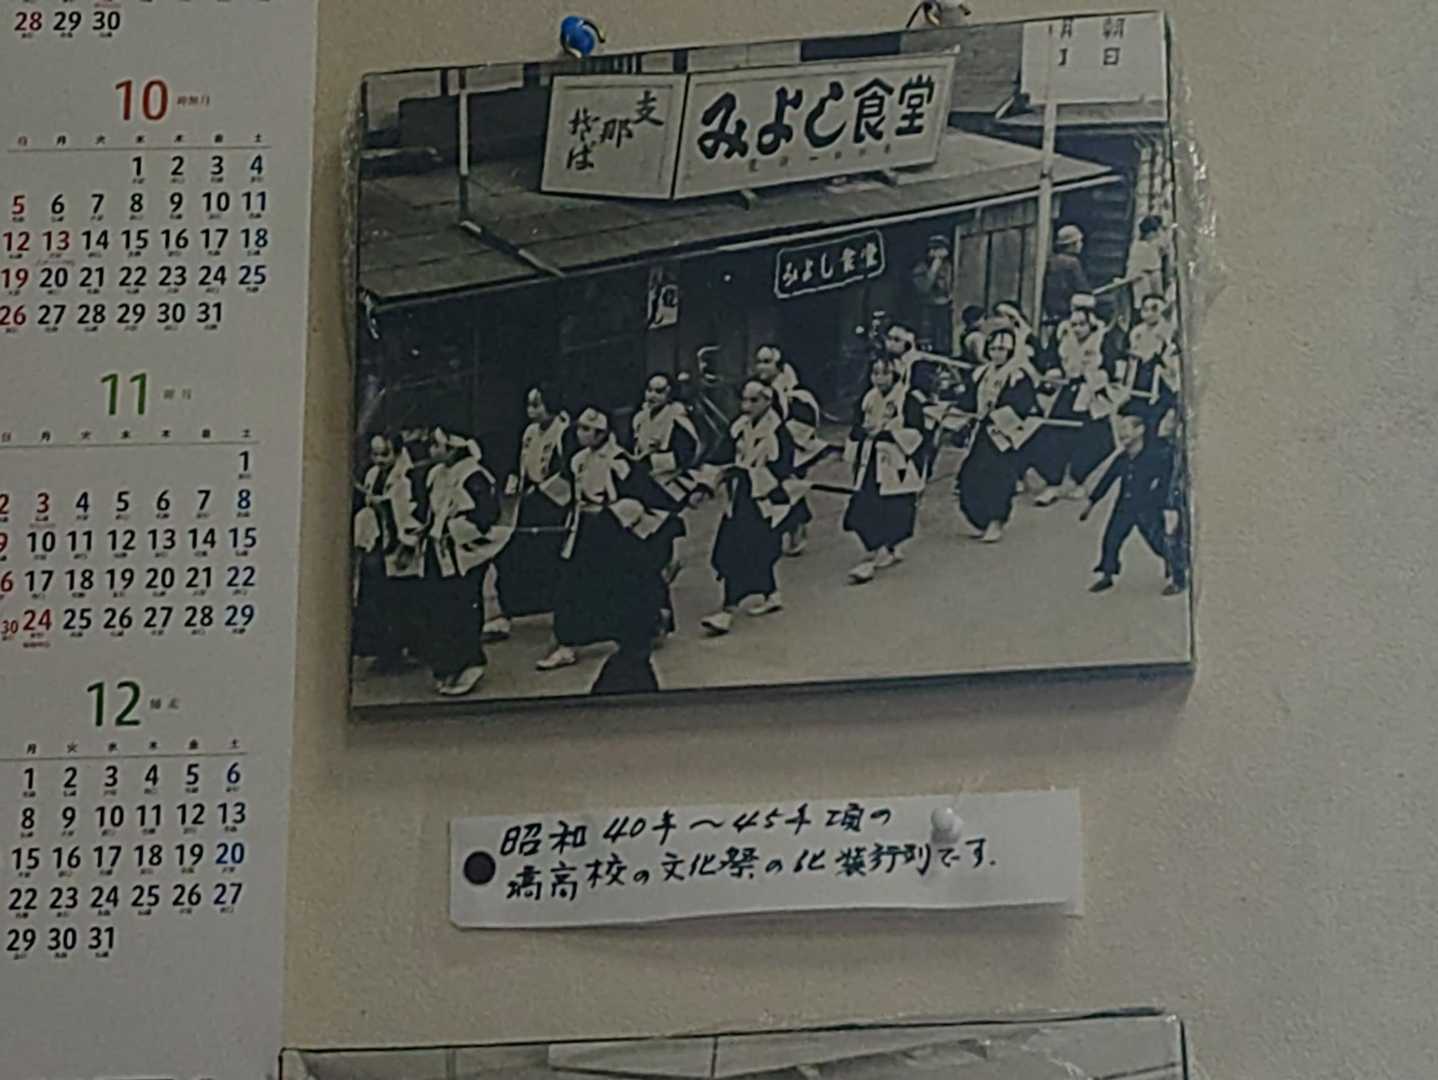 28 29 30
10
日 月 火 水 木 金 土
1 2 3 4
5 6 7 8 9 10 11
12 13 14 15 16 17 18
19 20 21 22 23 24 25
26 27 28 29 30 31
11
日 月 火 水 木 金 土
1
2 3 4 5 6 7 8
9 10 11 12 13 14 15
16 17 18 19 20 21 22
30 24 25 26 27 28 29
12
月 火 水 木 金 土
1 2 3 4 5 6
8 9 10 11 12 13
15 16 17 18 19 20
22 23 24 25 26 27
29 30 31
支那そば
みよし食堂
朝日
みよし食堂
昭和40年〜45年頃の
高校の文化祭の化装行列です.